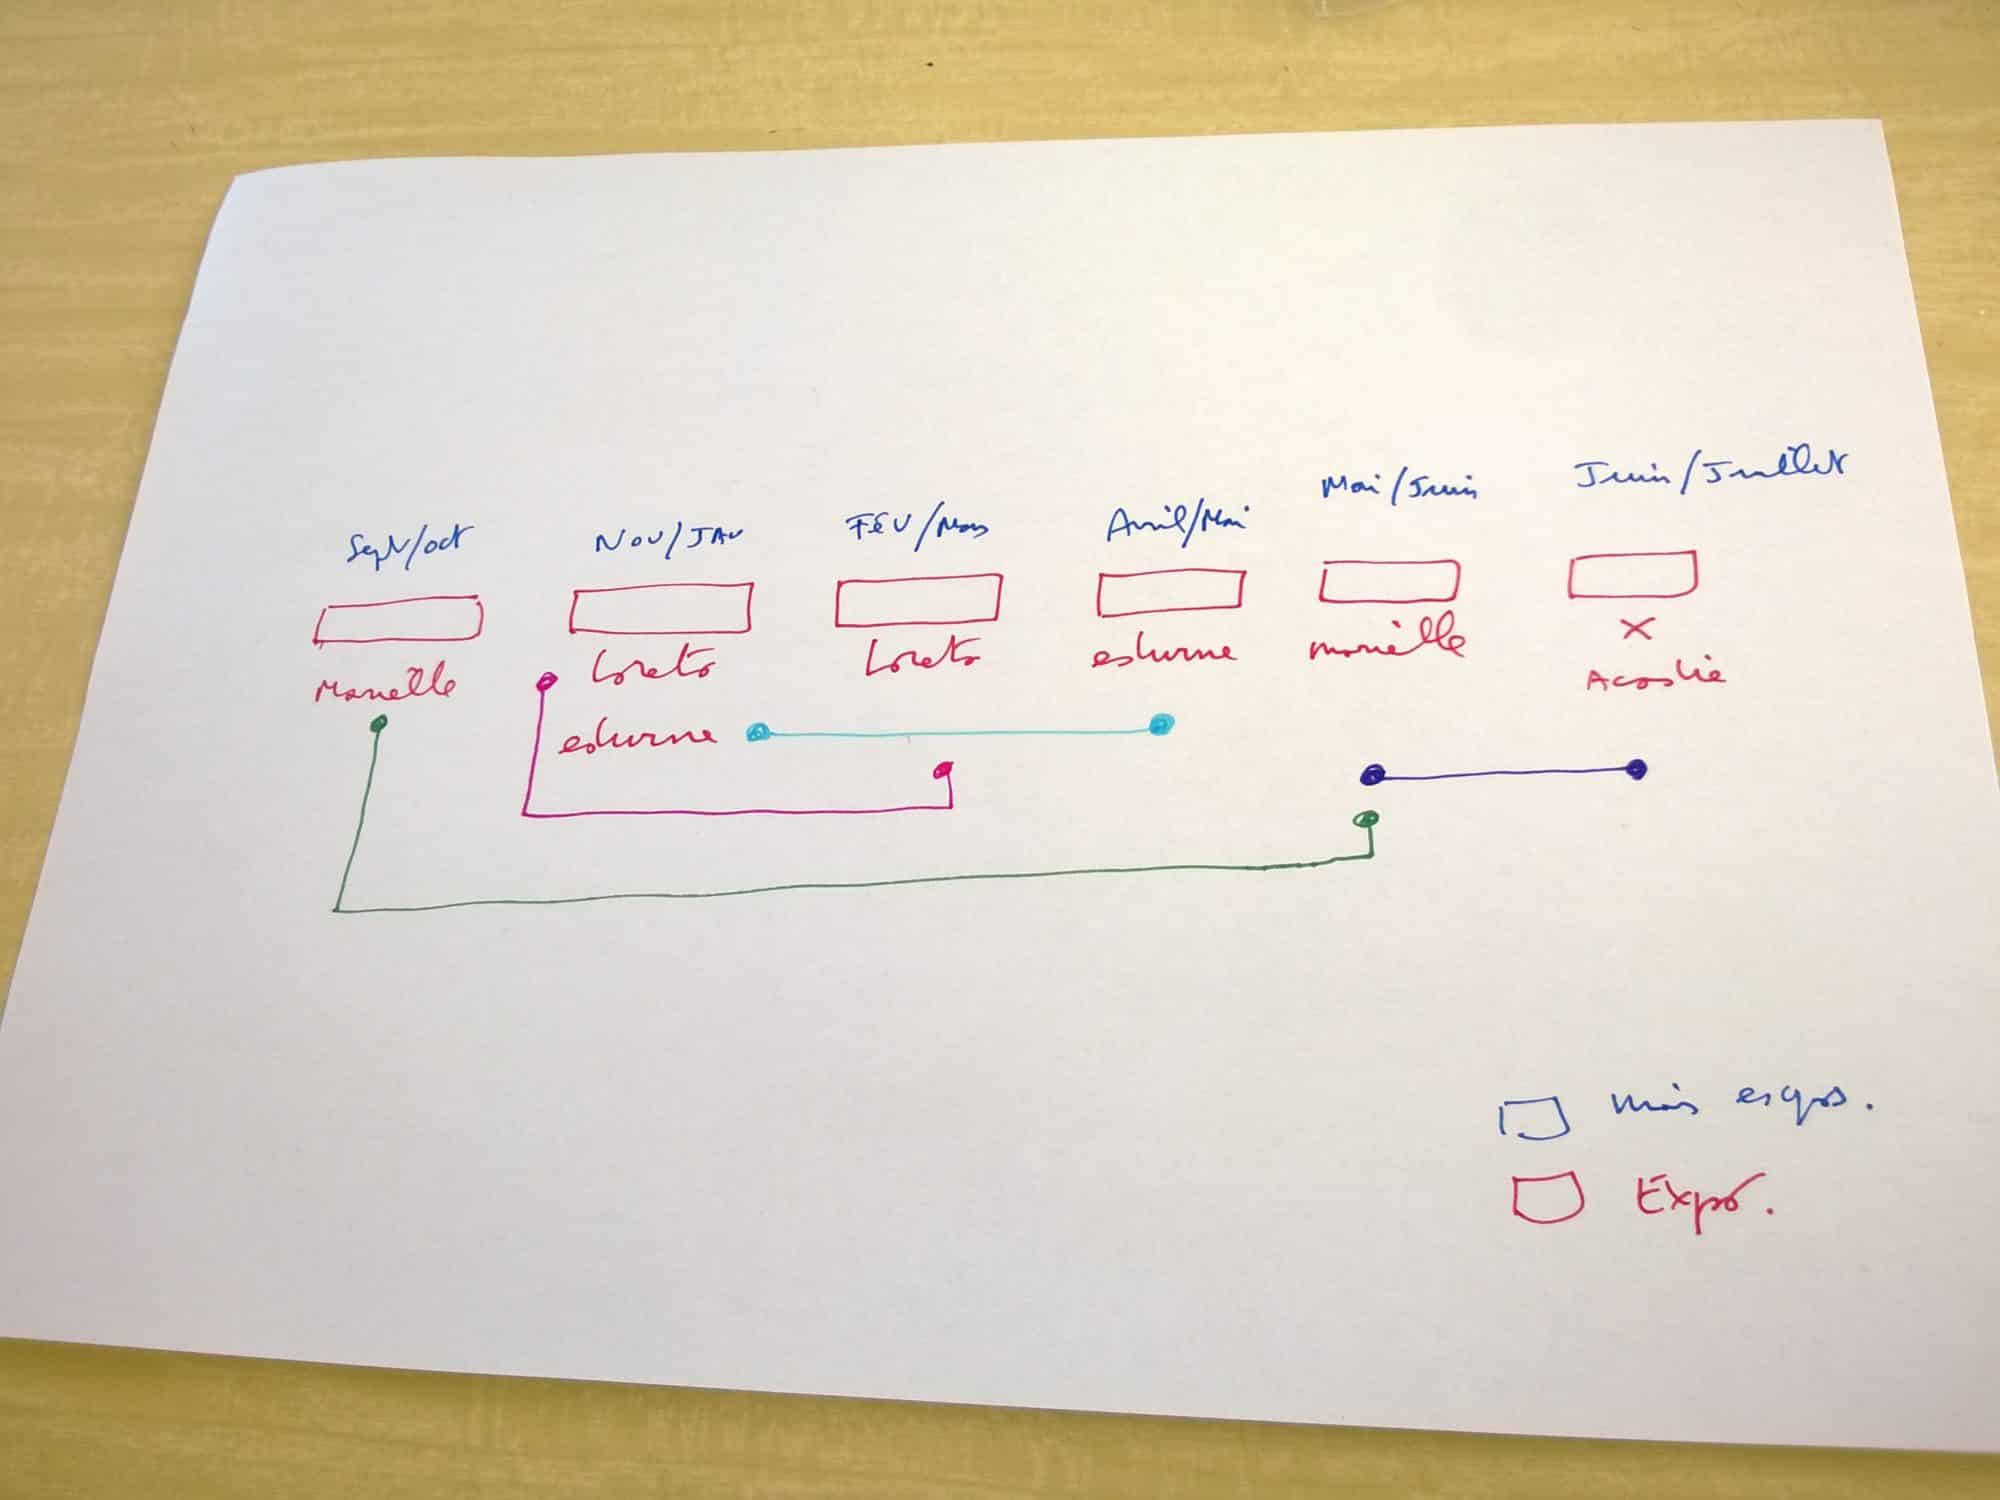 Sept/oct Nov/Jav Fév/Mars Avril/Mai Mai/Juin Juin/Juillet
Marielle Loreto Loreto marielle X
esturne
mois expos.
Expo.